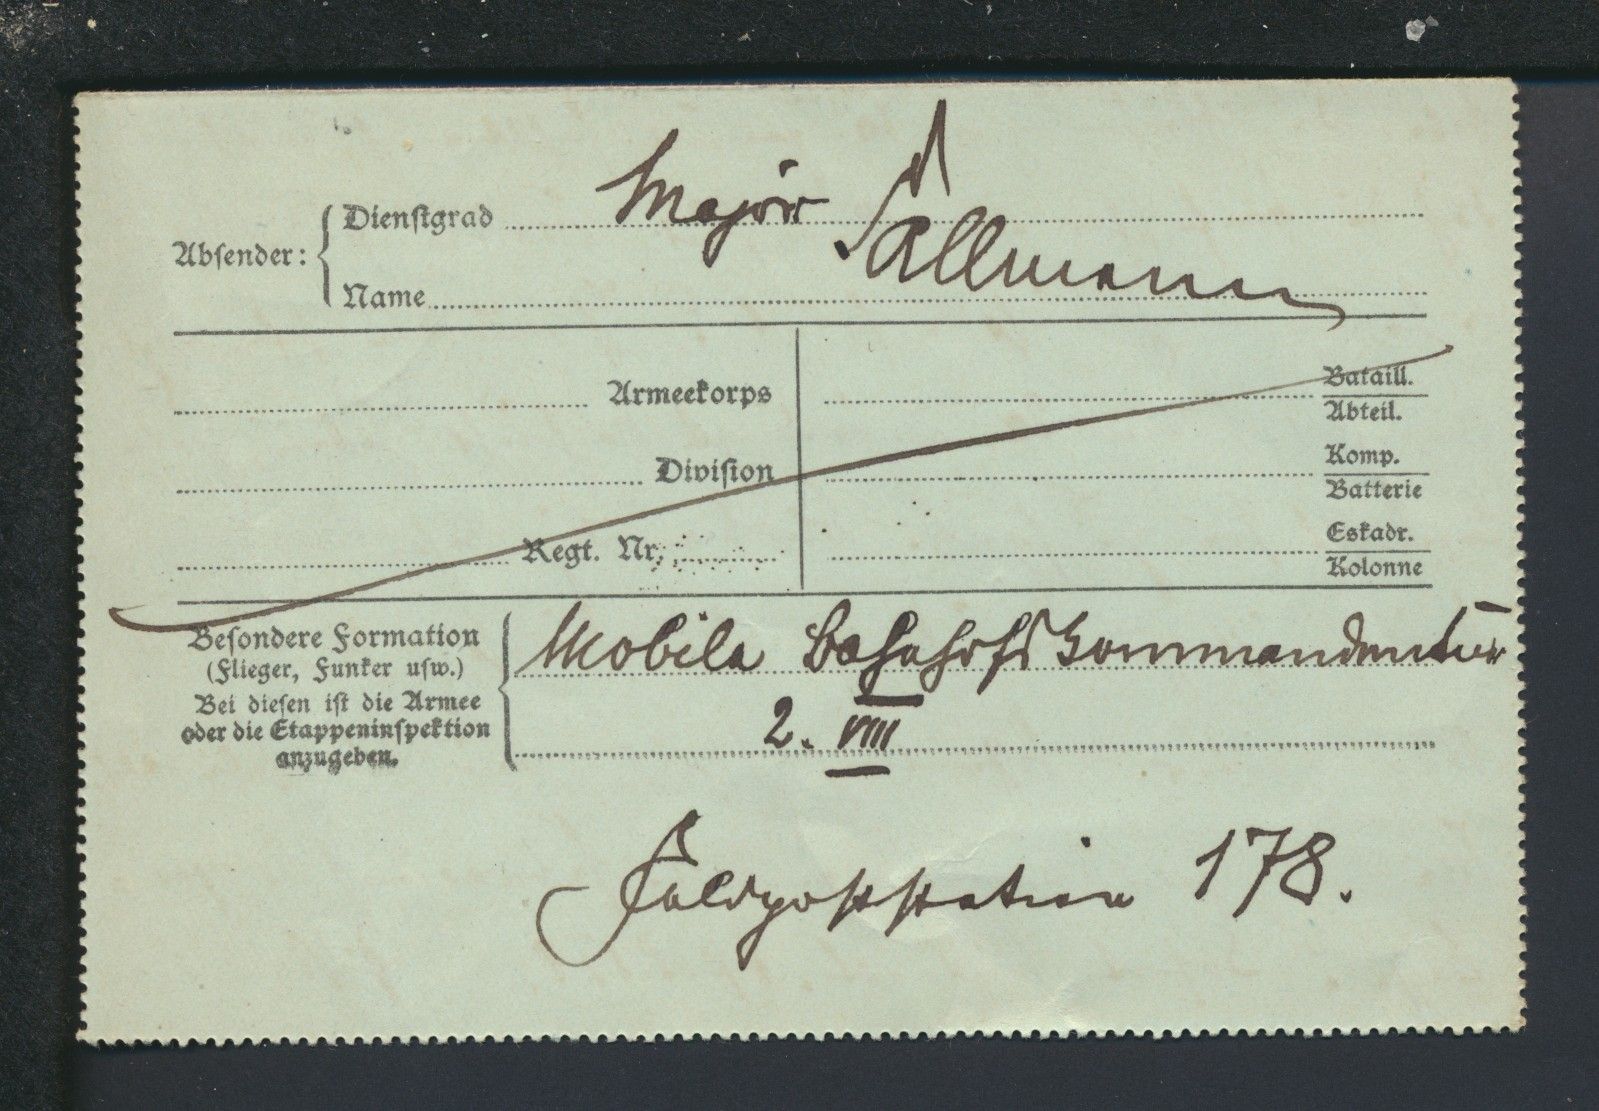 Major
Dienstgrad
Absender:
Name
Allmann
Armeekorps
Bataill.
Abteil.
Division
Komp.
Batterie
Regt. Nr.
Eskadr.
Kolonne
Besondere Formation
(Flieger, Funker usw.)
Bei diesen ist die Armee
oder die Etappeninspektion
anzugeben.
Mobile Bahnhofs Kommandantur
2. VIII
Feldpoststation 178.